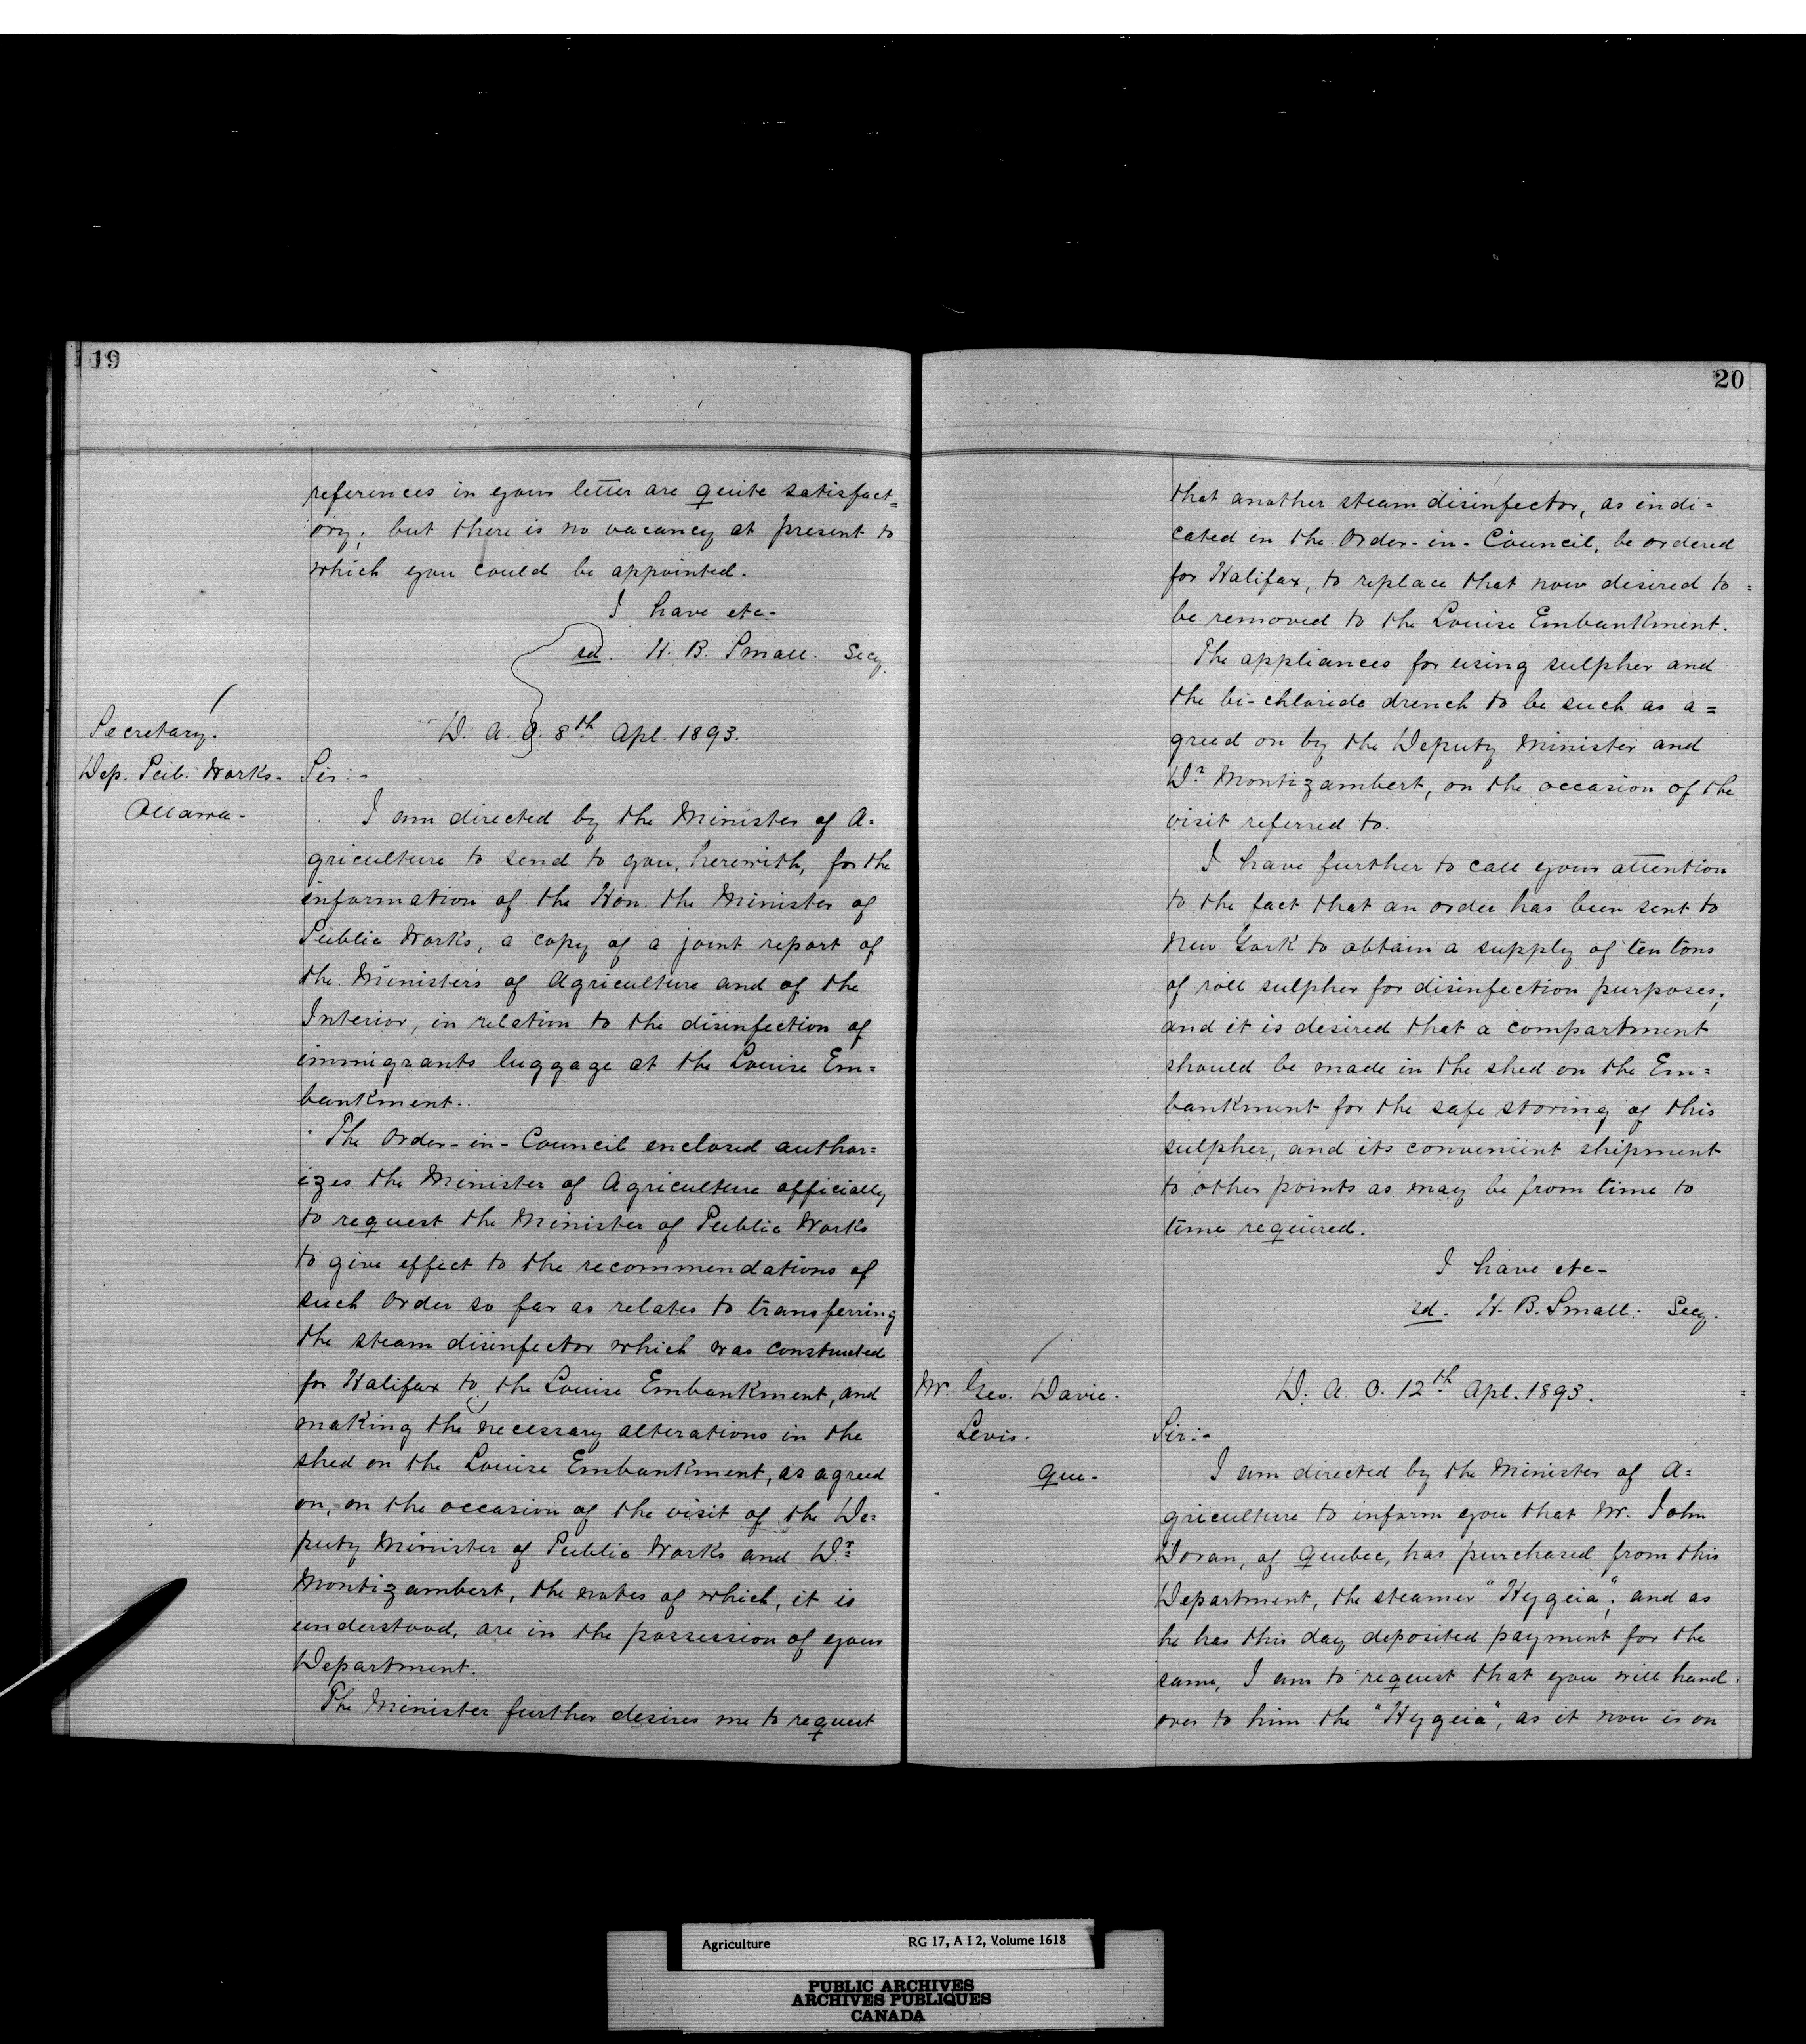 19
references in your letter are quite satisfact=
ory; but there is no vacancy at present to
which you could be appointed.
I have etc-
sd. H. B. Small. Secy.
Secretary.
Dep. Pub. Works-
Ottawa-
D. A. O. 8th Apl. 1893.
Sir:-
I am directed by the Minister of A=
griculture to send to you, herewith, for the
information of the Hon. the Minister of
Public Works, a copy of a joint report of
the Ministers of Agriculture and of the
Interior, in relation to the disinfection of
immigrants luggage at the Louise Em=
bankment.
The Order-in-Council enclosed author=
izes the Minister of Agriculture officially
to request the Minister of Public Works
to give effect to the recommendations of
such Order so far as relates to transferring
the steam disinfector which was constructed
for Halifax to the Louise Embankment, and
making the necessary alterations in the
shed on the Louise Embankment, as agreed
on, on the occasion of the visit of the De=
puty Minister of Public Works and Dr.
Montizambert, the notes of which, it is
understood, are in the possession of your
Department.
The Minister further desires me to request
20
that another steam disinfector, as indi=
cated in the Order-in-Council, be ordered
for Halifax, to replace that now desired to
be removed to the Louise Embankment.
The appliances for using sulpher and
the bi-chloride drench to be such as a=
greed on by the Deputy Minister and
Dr Montizambert, on the occasion of the
visit referred to.
I have further to call your attention
to the fact that an order has been sent to
New York to obtain a supply of ten tons
of roll sulpher for disinfection purposes;
and it is desired that a compartment
should be made in the shed on the Em=
bankment for the safe storing of this
sulpher, and its convenient shipment
to other points as may be from time to
time required.
I have etc-
sd. H. B. Small. Secy.
Mr. Geo. Davie.
Levis.
Que-
D. A. O. 12th Apl. 1893.
Sir:-
I am directed by the Minister of A=
griculture to inform you that Mr. John
Doran, of Quebec, has purchased from this
Department, the steamer "Hygeia"; and as
he has this day deposited payment for the
same, I am to request that you will hand
over to him the "Hygeia", as it now is on
Agriculture RG 17, A I 2, Volume 1618
PUBLIC ARCHIVES
ARCHIVES PUBLIQUES
CANADA